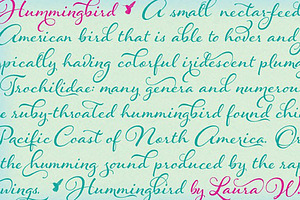 Hummingbird A small nectar-feed
American bird that is able to hover and
pically having colorful iridescent pluma
Trochilidae: many genera and numerou
e ruby-throated hummingbird found chi
Pacific Coast of North America. Or
the humming sound produced by the rap
wings. Hummingbird by Laura W